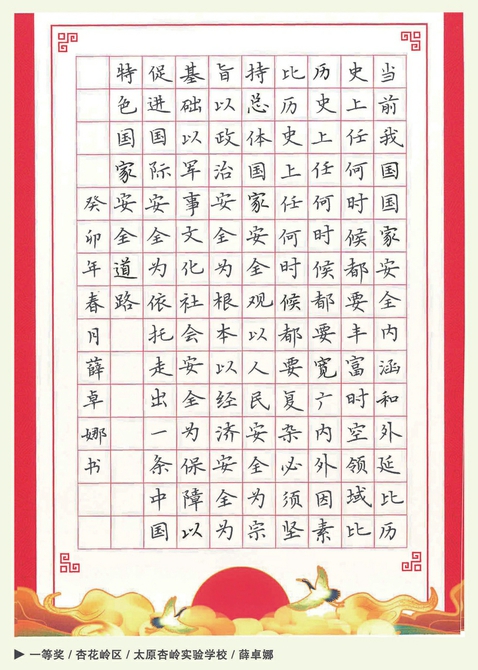 当前我国国家安全内涵和外延比历
史上任何时候都要丰富时空领域比
历史上任何时候都要宽广内外因素
比历史上任何时候都要复杂必须坚
持总体国家安全观以人民安全为宗
旨以政治安全为根本以经济安全为
基础以军事文化社会安全为保障以
促进国际安全为依托走出一条中国
特色国家安全道路
癸卯年春月薛卓娜书
▶ 一等奖 / 杏花岭区 / 太原杏岭实验学校 / 薛卓娜